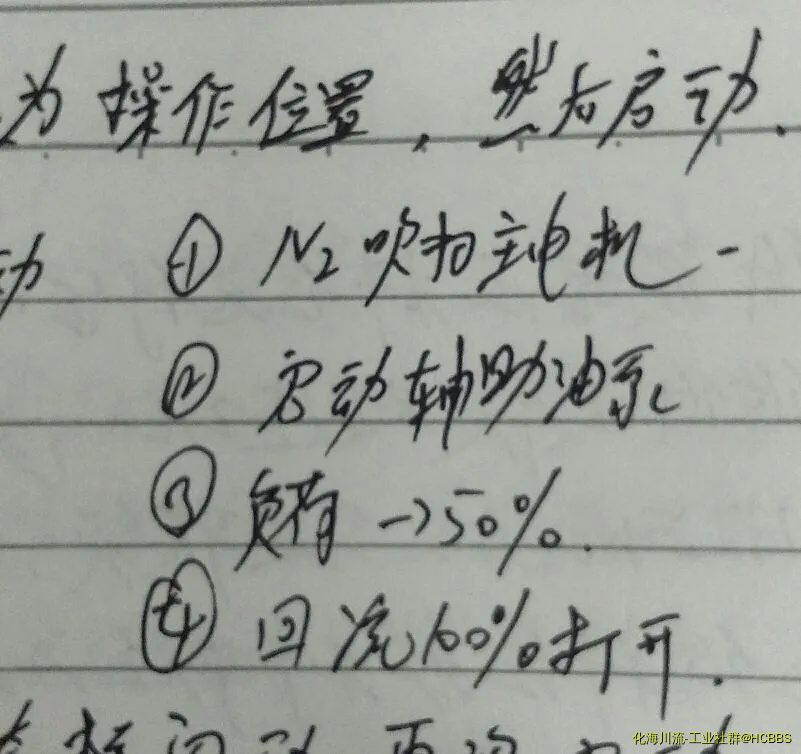 为操作位置，然后启动.
动 ① N2吹扫主电机-
② 启动辅助油泵
③ 负荷→50%.
④ 回流100%打开.
化海川流-工业社群@HCBBS